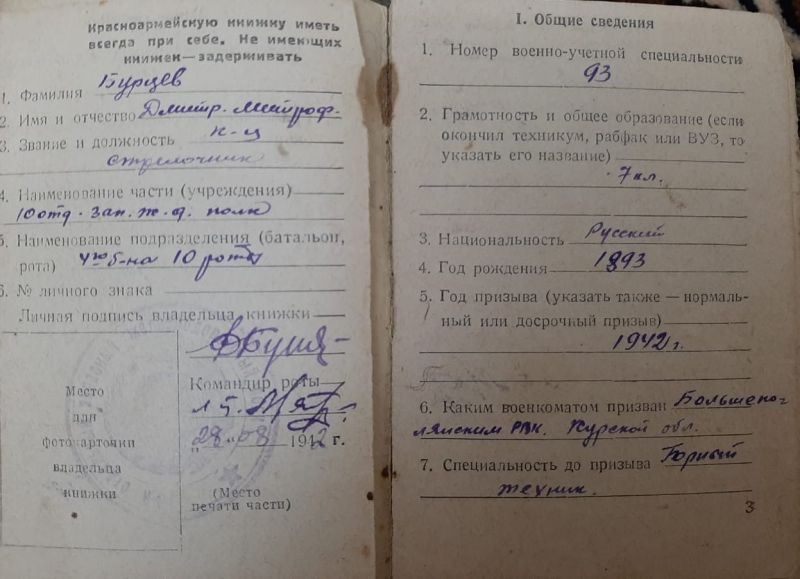 Красноармейскую книжку иметь
всегда при себе. Не имеющих
книжек—задерживать
1. Фамилия Бурцев
2. Имя и отчество Дмитр. Митроф.
3. Звание и должность к-ц
стрелочник
4. Наименование части (учреждения)
10 отд. зап. ж.д. полк
5. Наименование подразделения (батальон,
рота) б-на 10 рота
6. № личного знака
Личная подпись владельца книжки
Командир роты
28 08 1942 г.
Место
для
фотокарточки
владельца
книжки
(Место
печати части)
I. Общие сведения
1. Номер военно-учетной специальности
93
2. Грамотность и общее образование (если
окончил техникум, рабфак или ВУЗ, то
указать его название)
7 кл.
3. Национальность Русский
4. Год рождения 1893
5. Год призыва (указать также — нормаль-
ный или досрочный призыв)
1942 г.
6. Каким военкоматом призван Большепо-
лянским РВК. Курской обл.
7. Специальность до призыва Горный
техник.
3